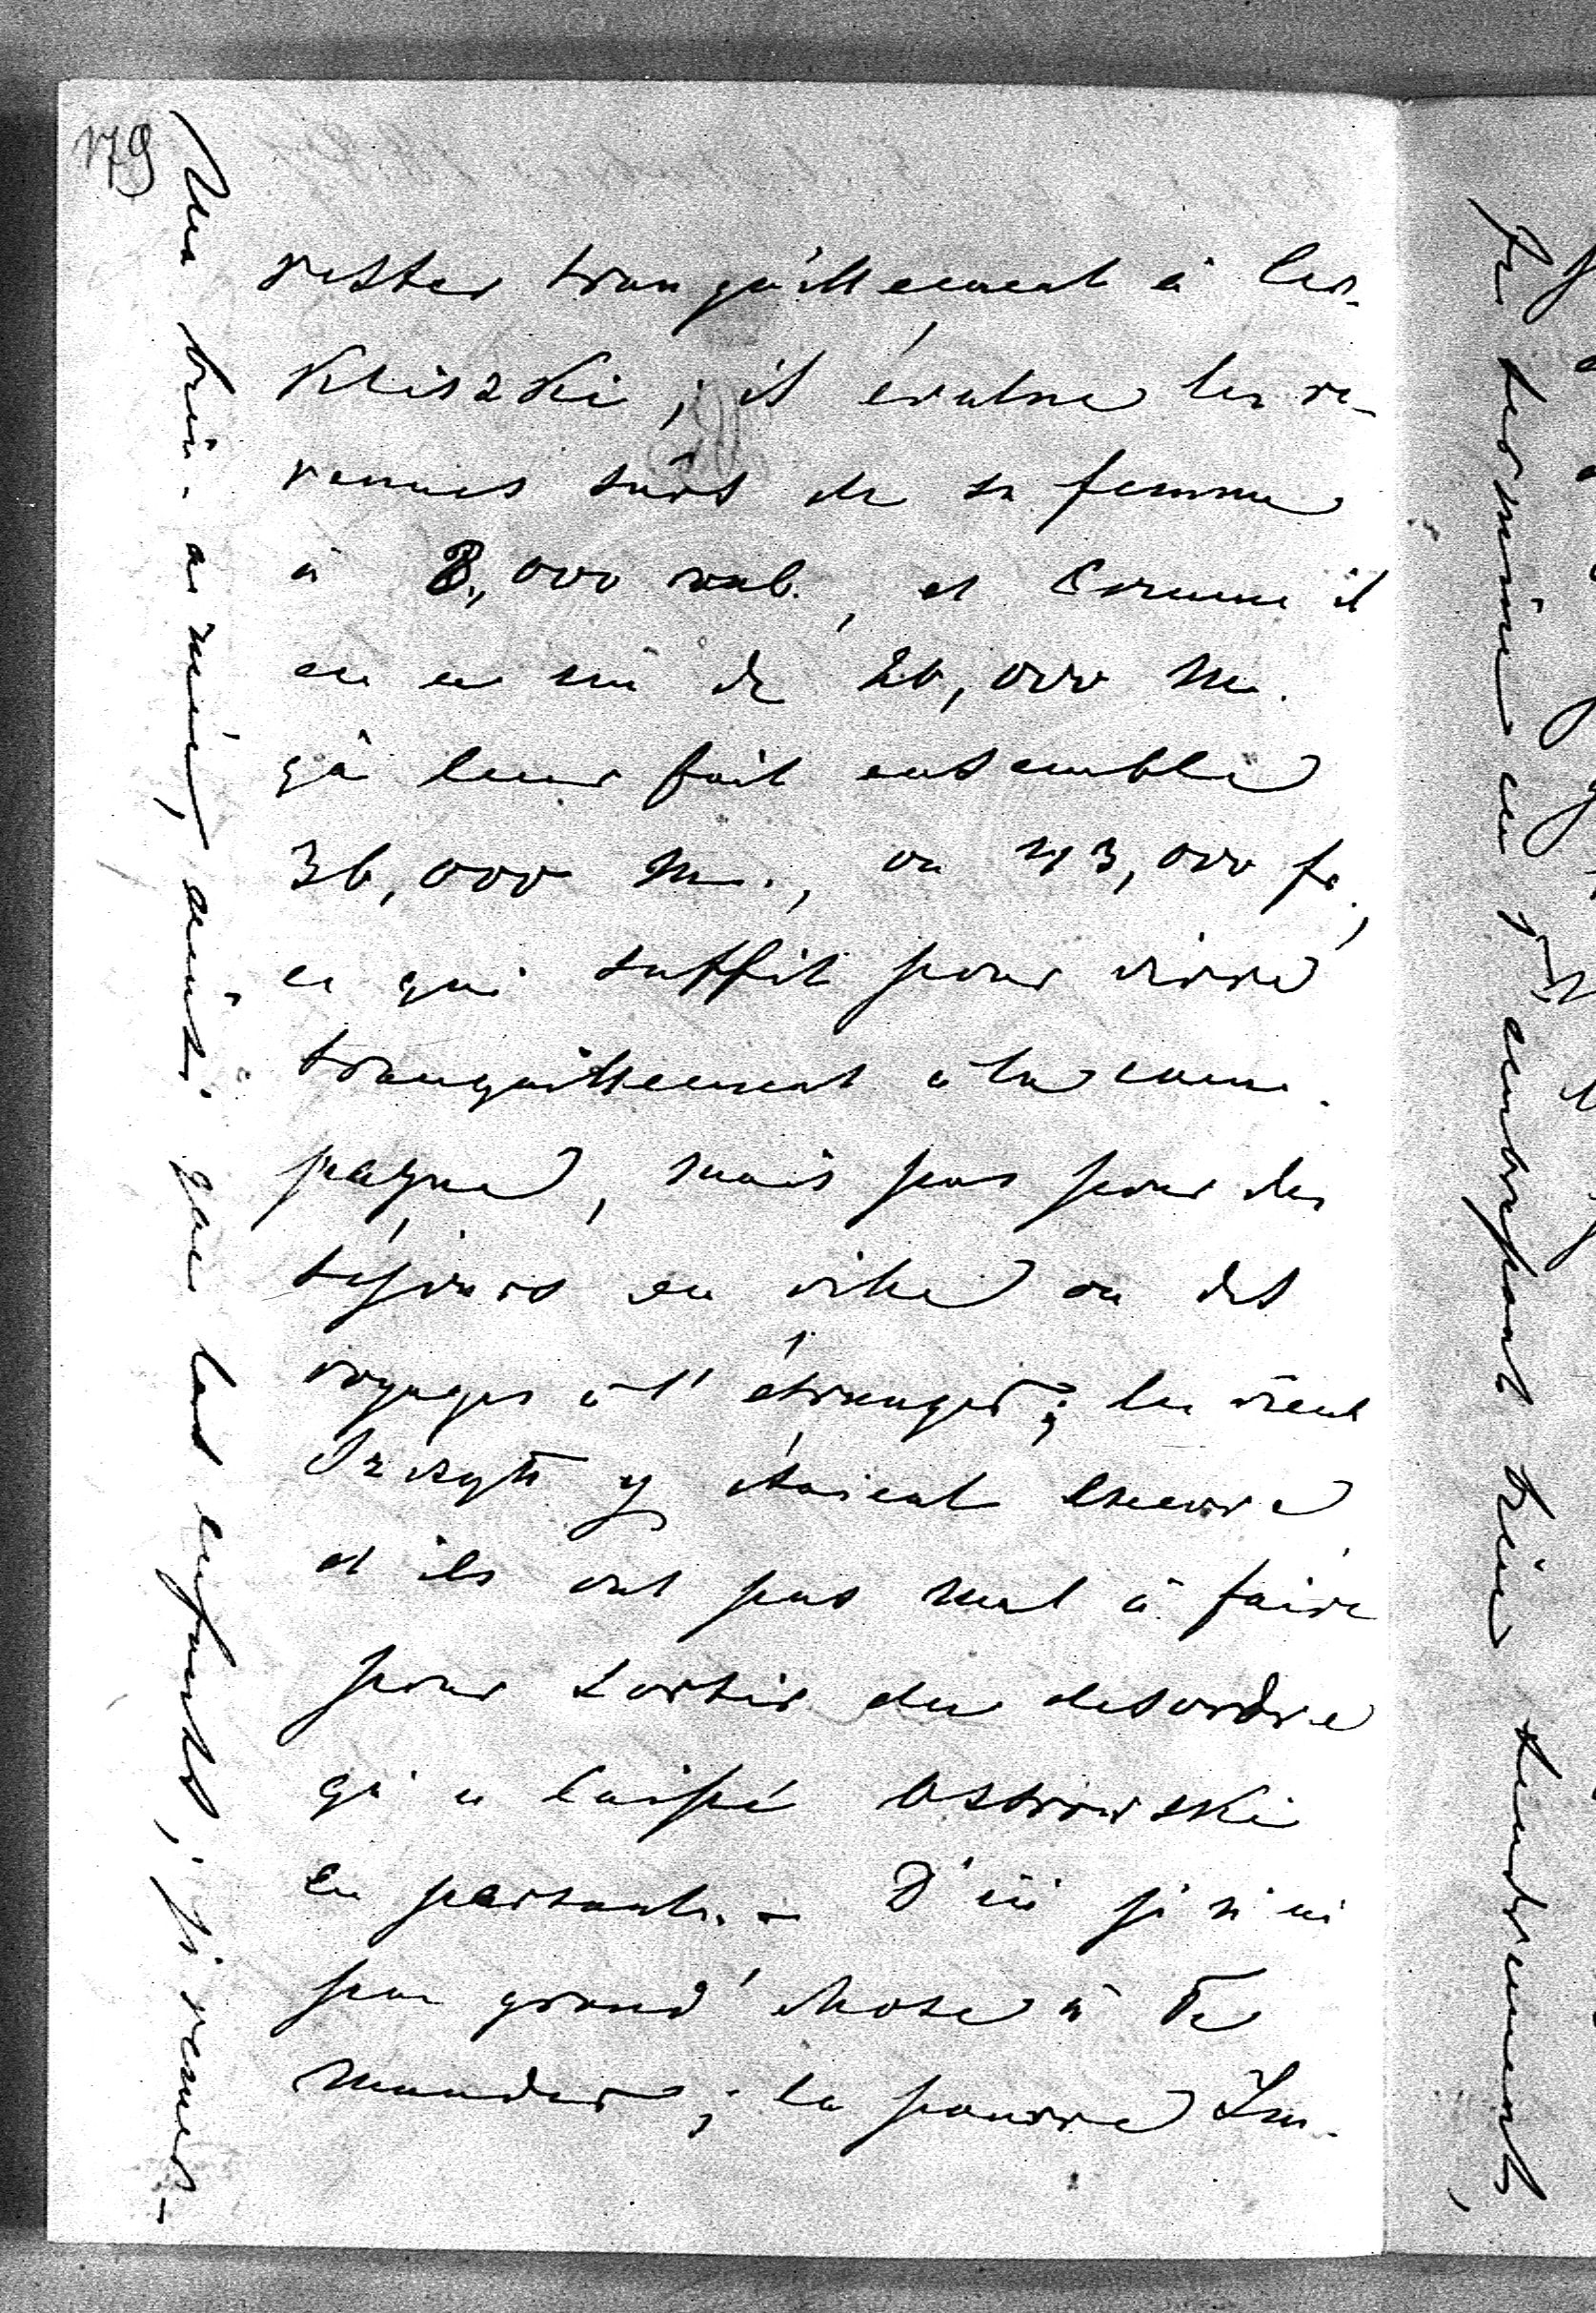 179
rester tranquillement à Ler-
Kliszki ; il évalue les re-
venues sûrs de sa femme
à 8,000 roub., et comme il
en a lui de 20,000 M.
çà leur fait ensemble
36,000 M., ou 43,000 fr.,
ce qui suffit pour vivre
tranquillement à la cam-
pagne, mais pas pour des
séjours en ville ou des
voyages à l'étranger ; les vieux
y étaient encore
et ils ont pas mal à faire
pour sortir du desordre
qu'a laissé Ostrowski
en partant. – D'ici je n'ai
pas grand'chose à Te
mander ; la pauvre Im-
ma bien-aimée, ainsi que les enfants, je remer-
je termine en t'embrassant bien tendrement,